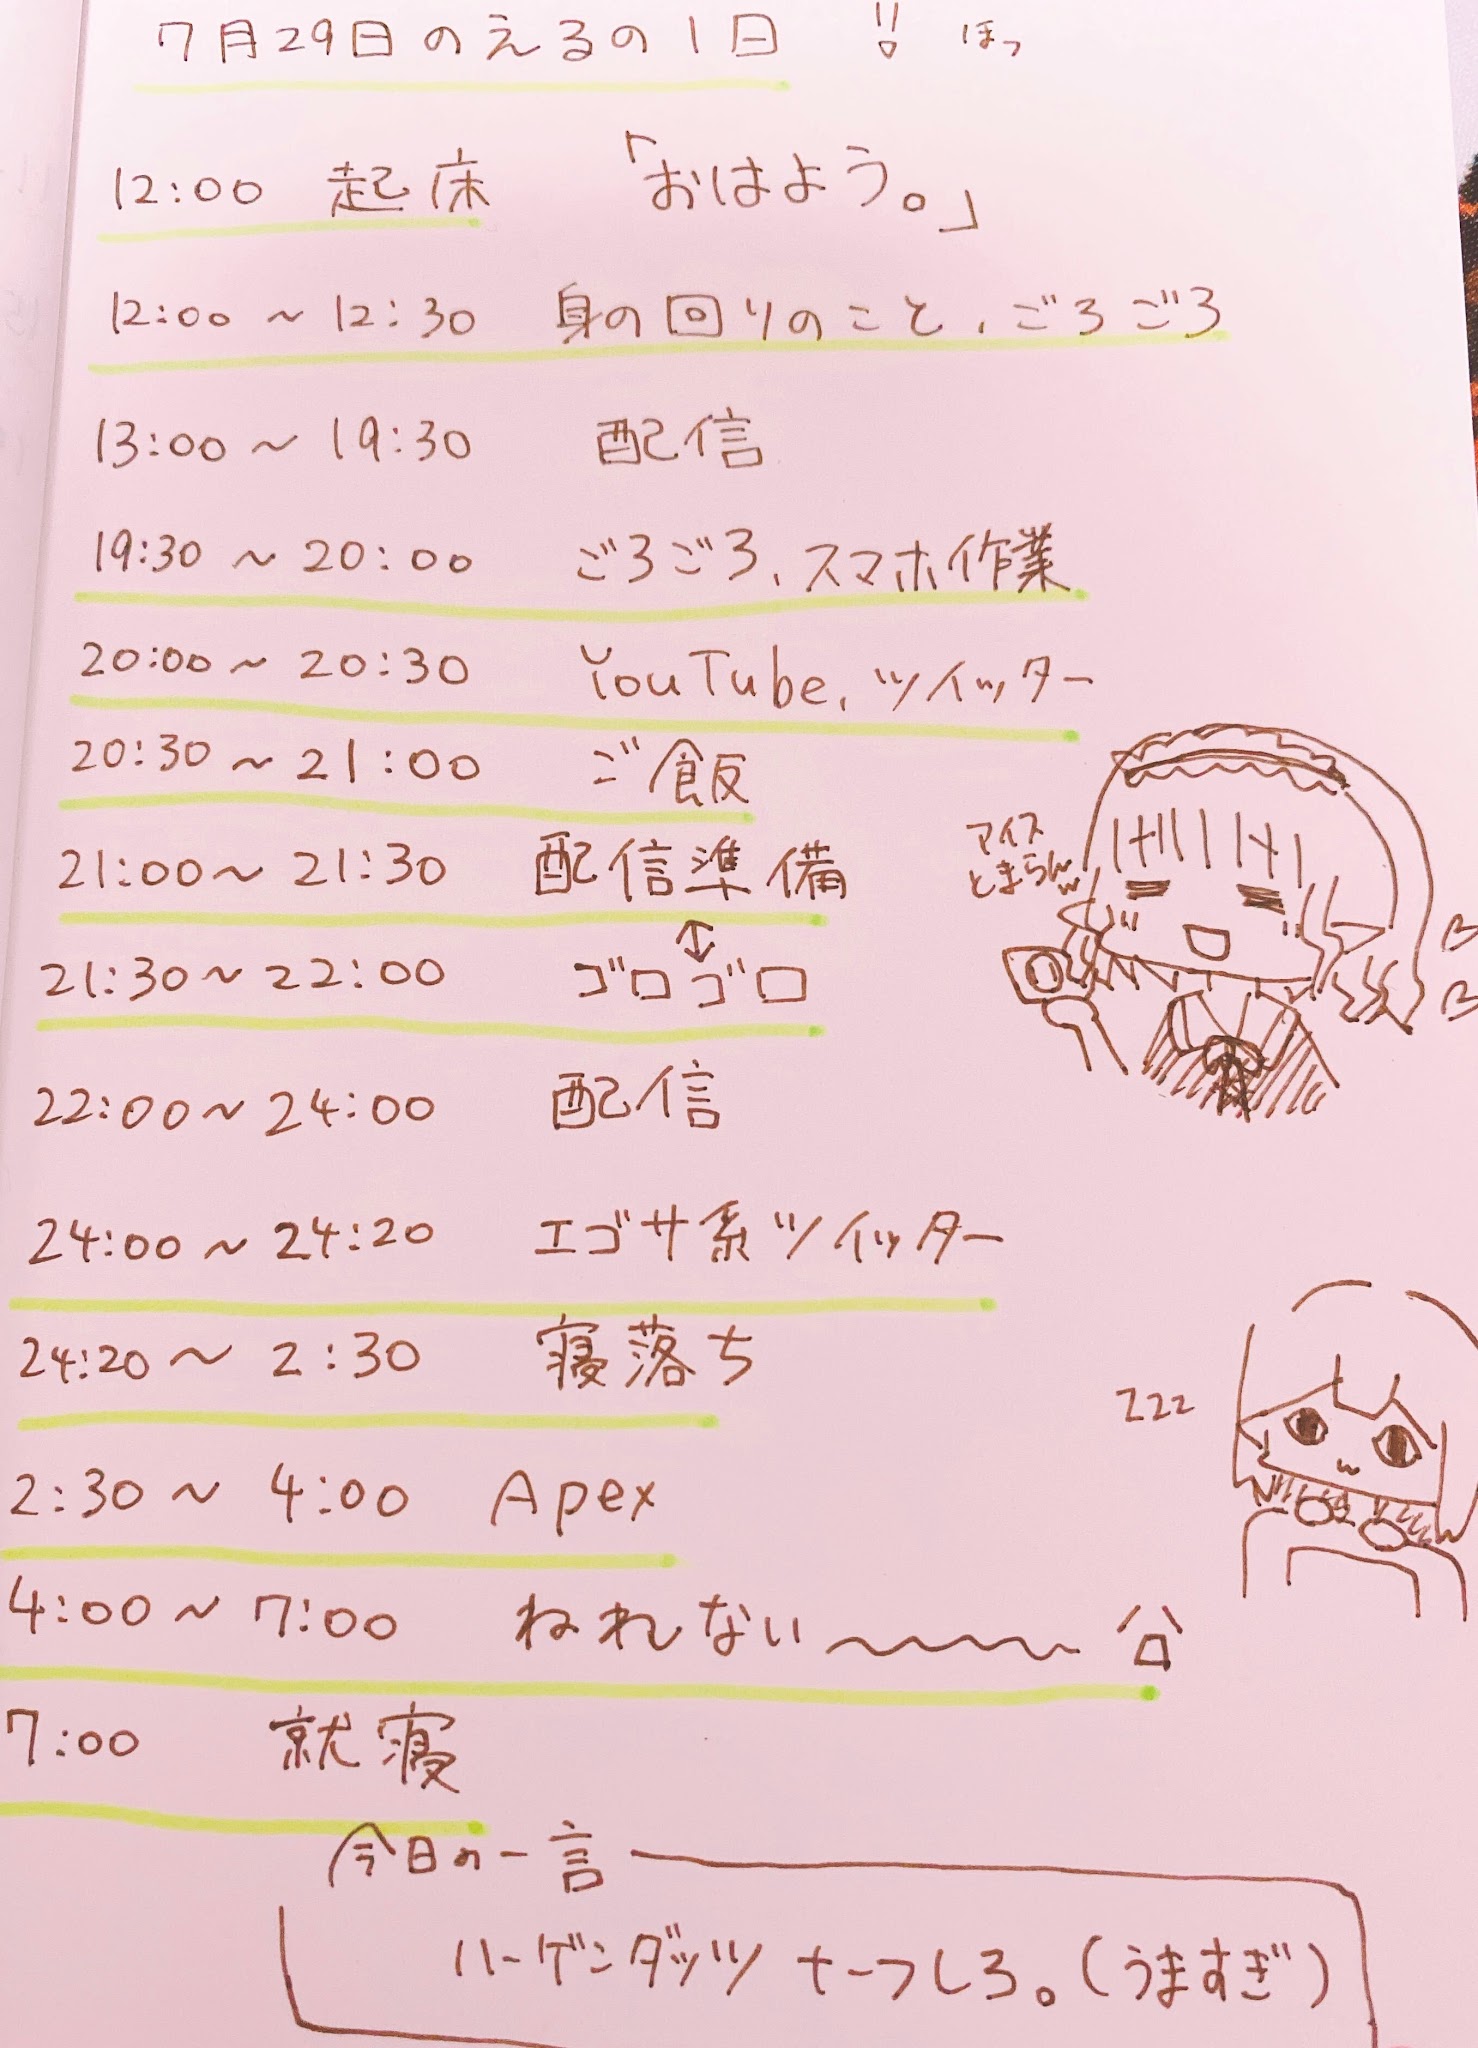 7月29日のえるの1日 !! ほっ
12:00 起床 「おはよう。」
12:00 ~ 12:30 身の回りのこと、ごろごろ
13:00 ~ 19:30 配信
19:30 ~ 20:00 ごろごろ、スマホ作業
20:00 ~ 20:30 YouTube、ツイッター
20:30 ~ 21:00 ご飯
21:00 ~ 21:30 配信準備
↕
21:30 ~ 22:00 ゴロゴロ
アイス
とまらんww
22:00 ~ 24:00 配信
24:00 ~ 24:20 エゴサ系ツイッター
24:20 ~ 2:30 寝落ち
zzz
2:30 ~ 4:00 Apex
4:00 ~ 7:00 ねれない〜〜〜〜
7:00 就寝
今日の一言
ハーゲンダッツ ナーフしろ。(うますぎ)